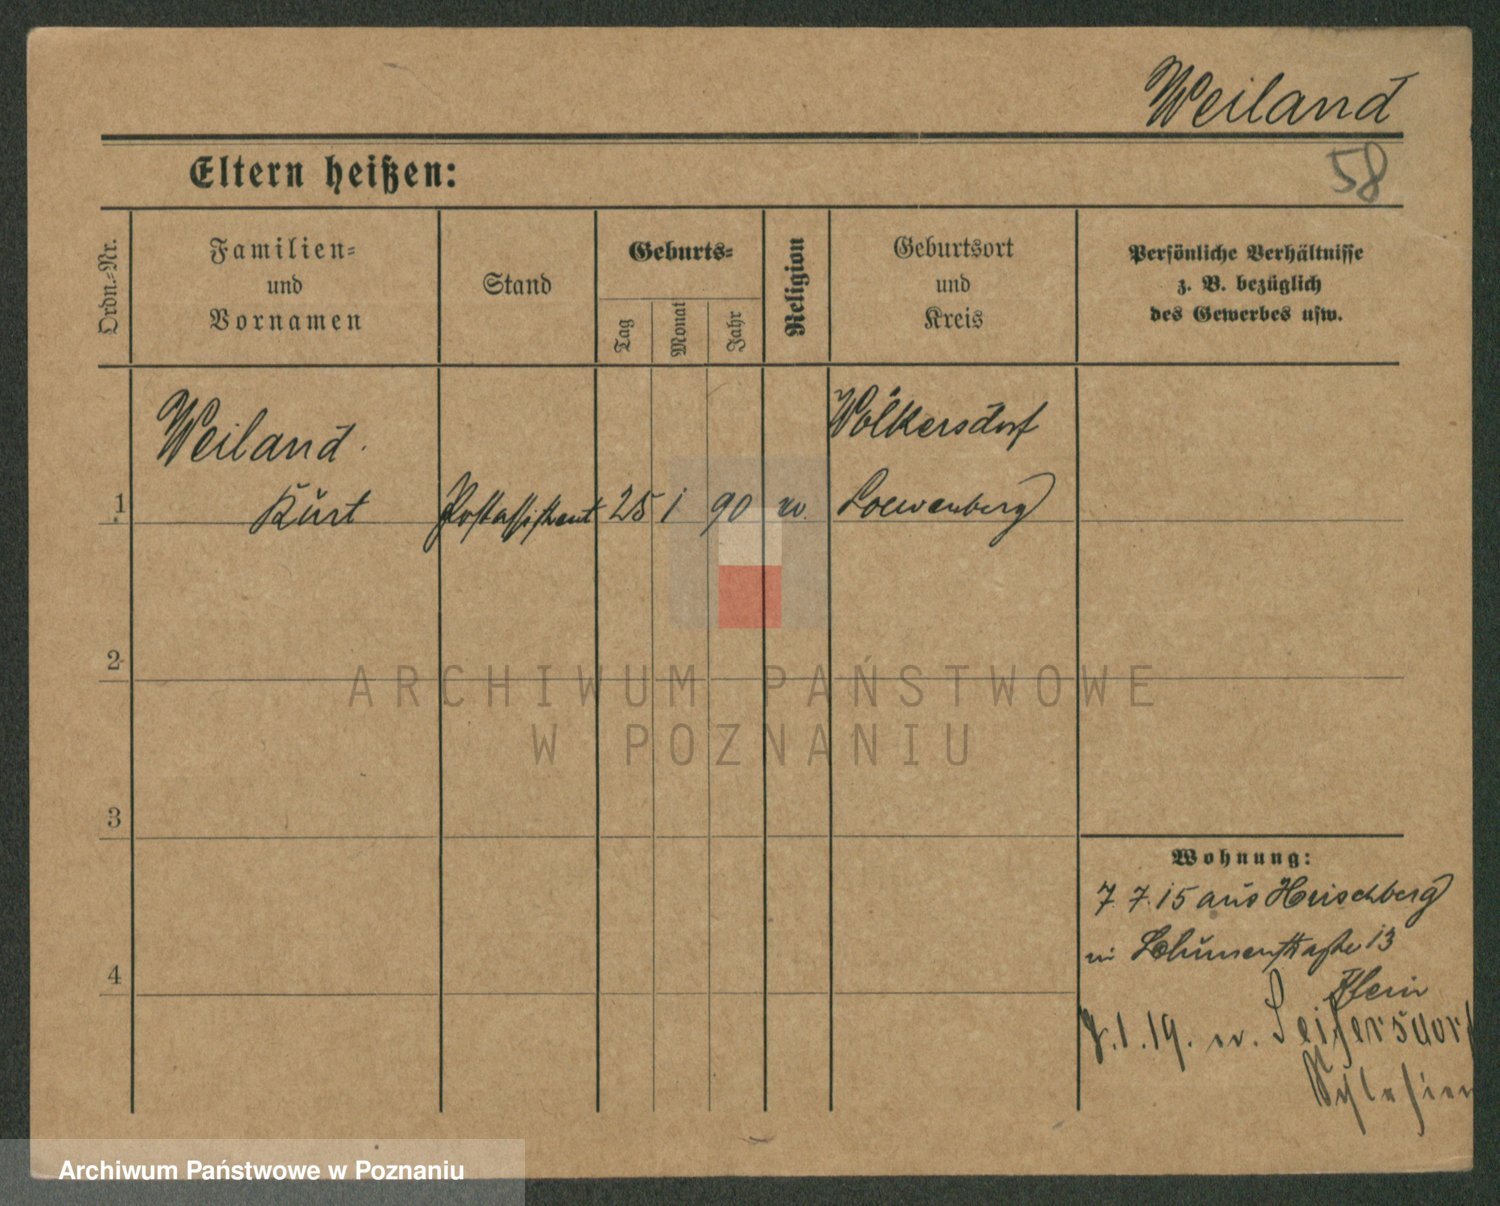 Weiland
58
Eltern heißen:
Ordn.-Nr.
Familien-
und
Vornamen
Stand
Geburts-
Tag
Monat
Jahr
Religion
Geburtsort
und
Kreis
Persönliche Verhältnisse
z. B. bezüglich
des Gewerbes usw.
Weiland.
1 Kurt Postassistent 25 1 90 Loewenberg
Wolkersdorf
2
3
4
Wohnung:
7.7.15 aus Hirschberg
13
Klein
8.1.19. n. Seifersdorf
Schlesien
ARCHIWUM PAŃSTWOWE
W POZNANIU
Archiwum Państwowe w Poznaniu